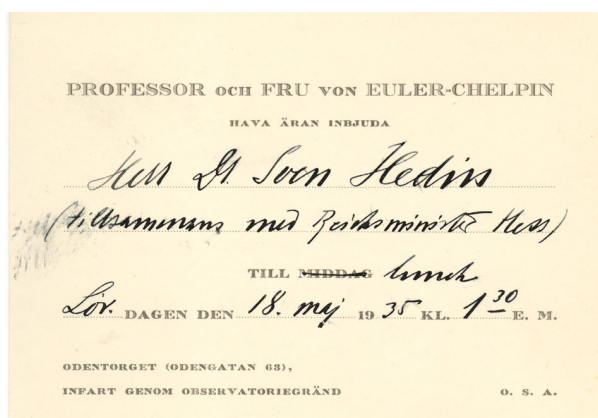 PROFESSOR OCH FRU VON EULER-CHELPIN
HAVA ÄRAN INBJUDA
Herr Dr. Sven Hedin
(tillsammans med Reichsminister Hess)
TILL MIDDAG lunch
Lör. DAGEN DEN 18. maj 1935 KL. 1 30 E. M.
ODENTORGET (ODENGATAN 63),
INFART GENOM OBSERVATORIEGRÄND O. S. A.